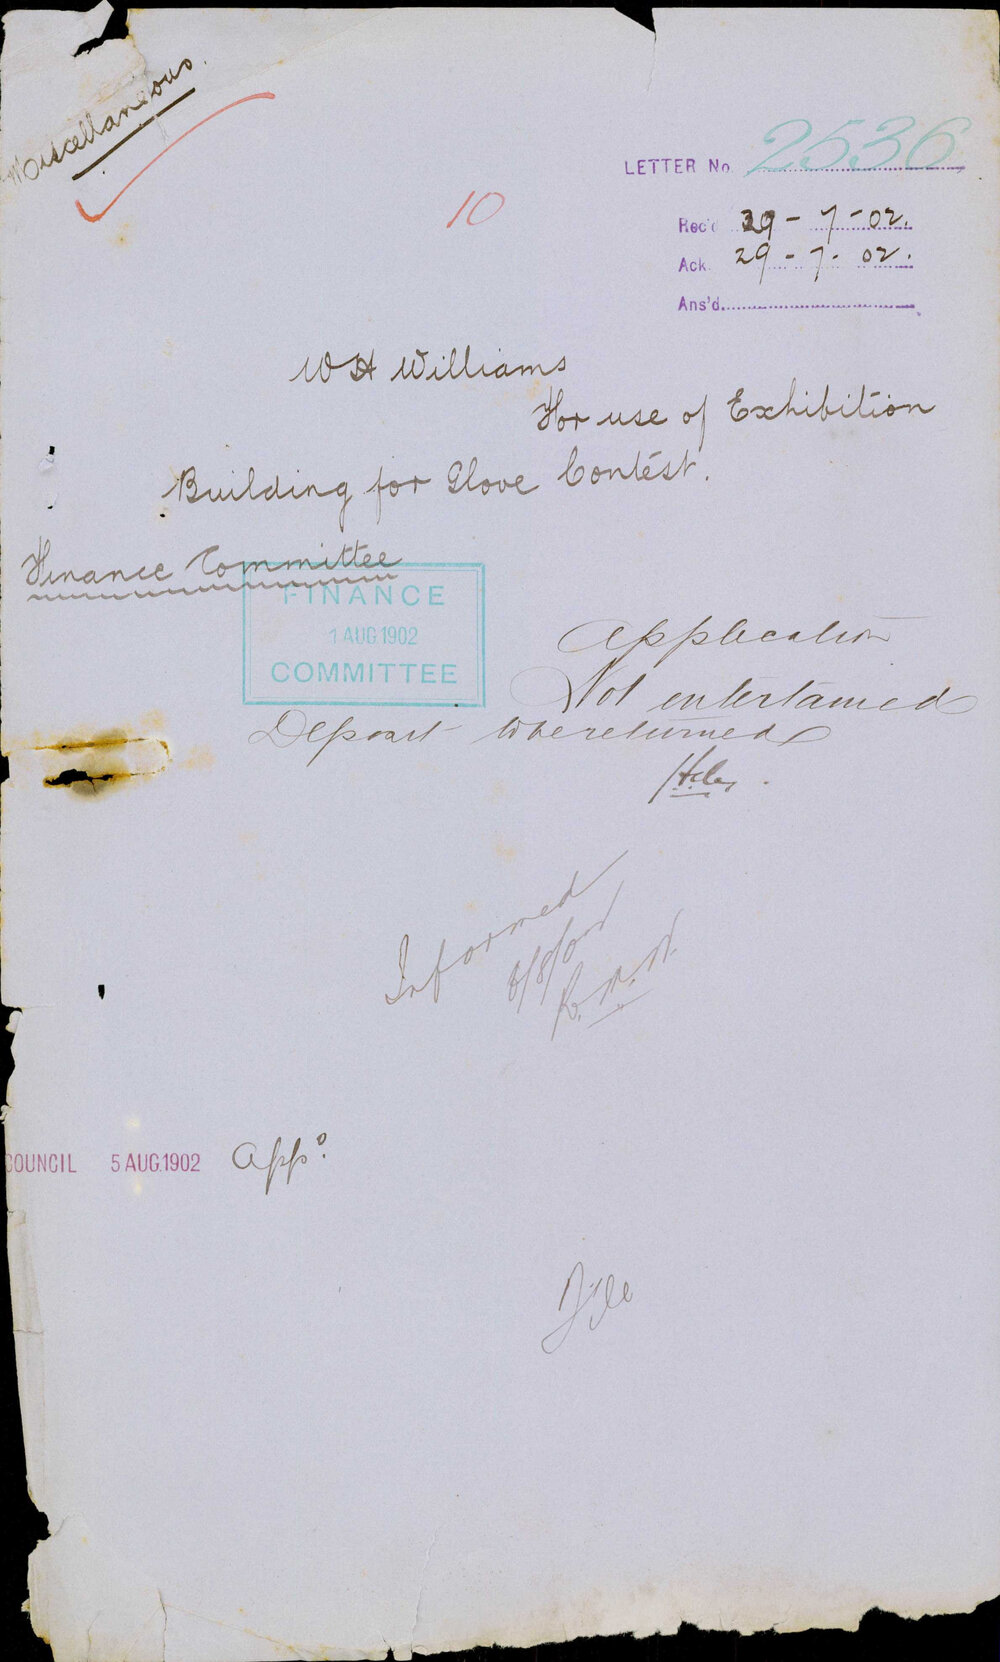 Miscellaneous.
LETTER No 2536
10
Rec'd 29-7-02.
Ack 29-7-02.
Ans'd
W H Williams
For use of Exhibition
Building for Glove Contest.
Finance Committee
FINANCE
1 AUG 1902
COMMITTEE
Application
Not entertained
Deposit to be returned
Informed
6/8/02
COUNCIL 5 AUG.1902 Appd.
File